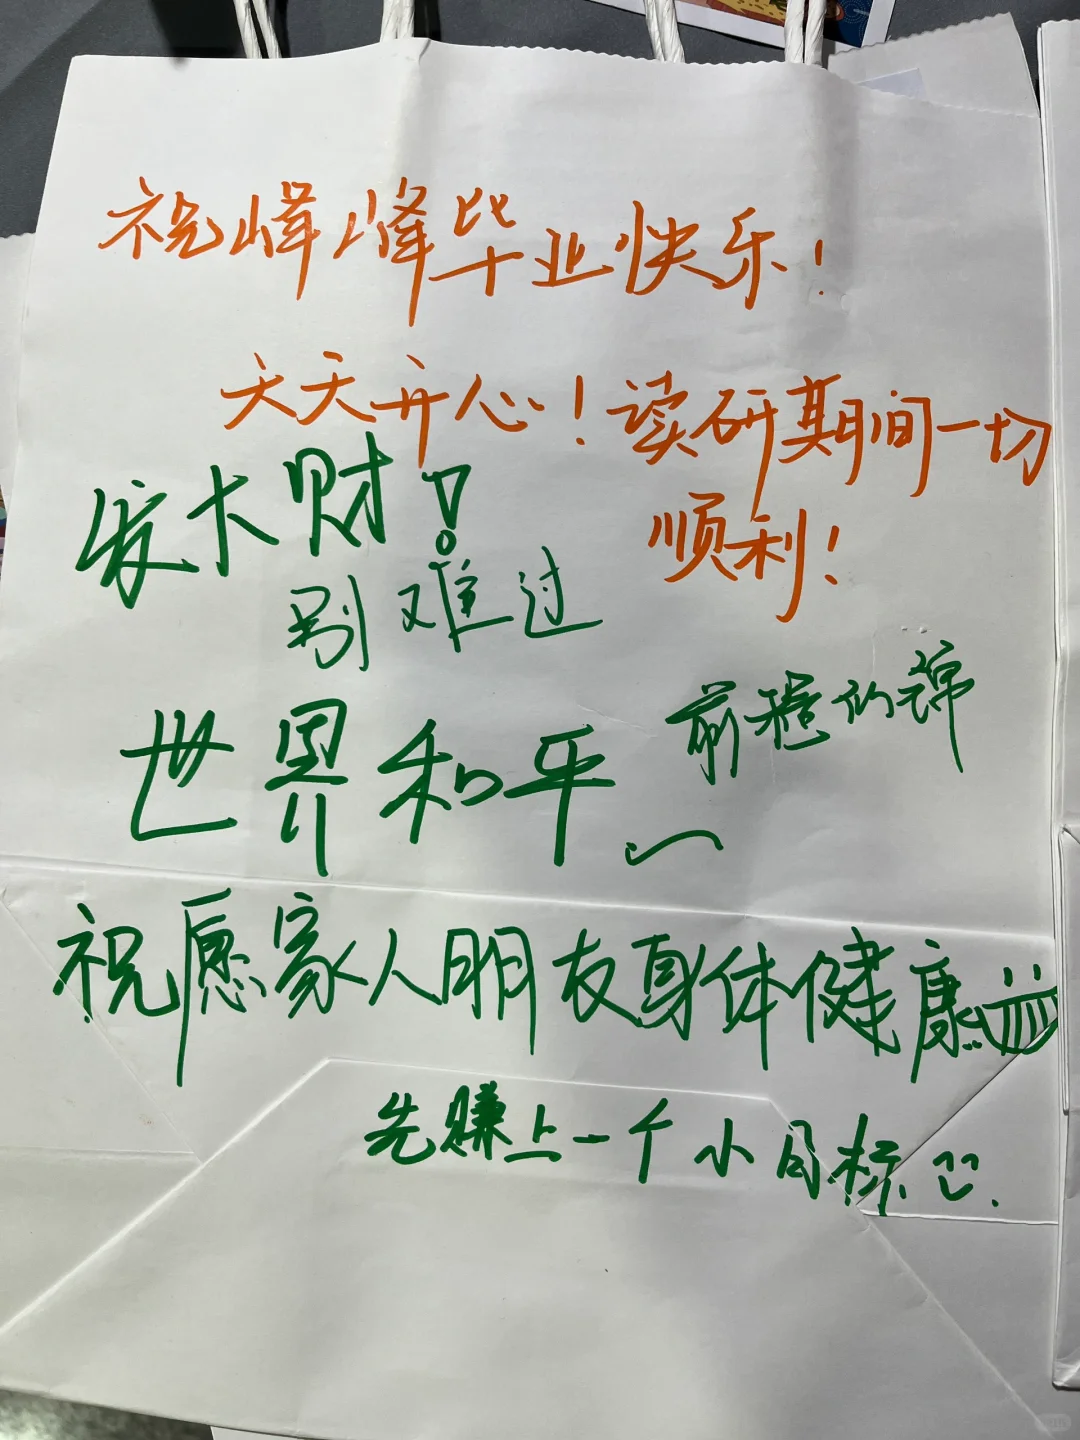 祝峰峰毕业快乐！
天天开心！读研期间一切
顺利！
发大财！
别难过
前程似锦
世界和平
祝愿家人朋友身体健康
先赚上一个小目标